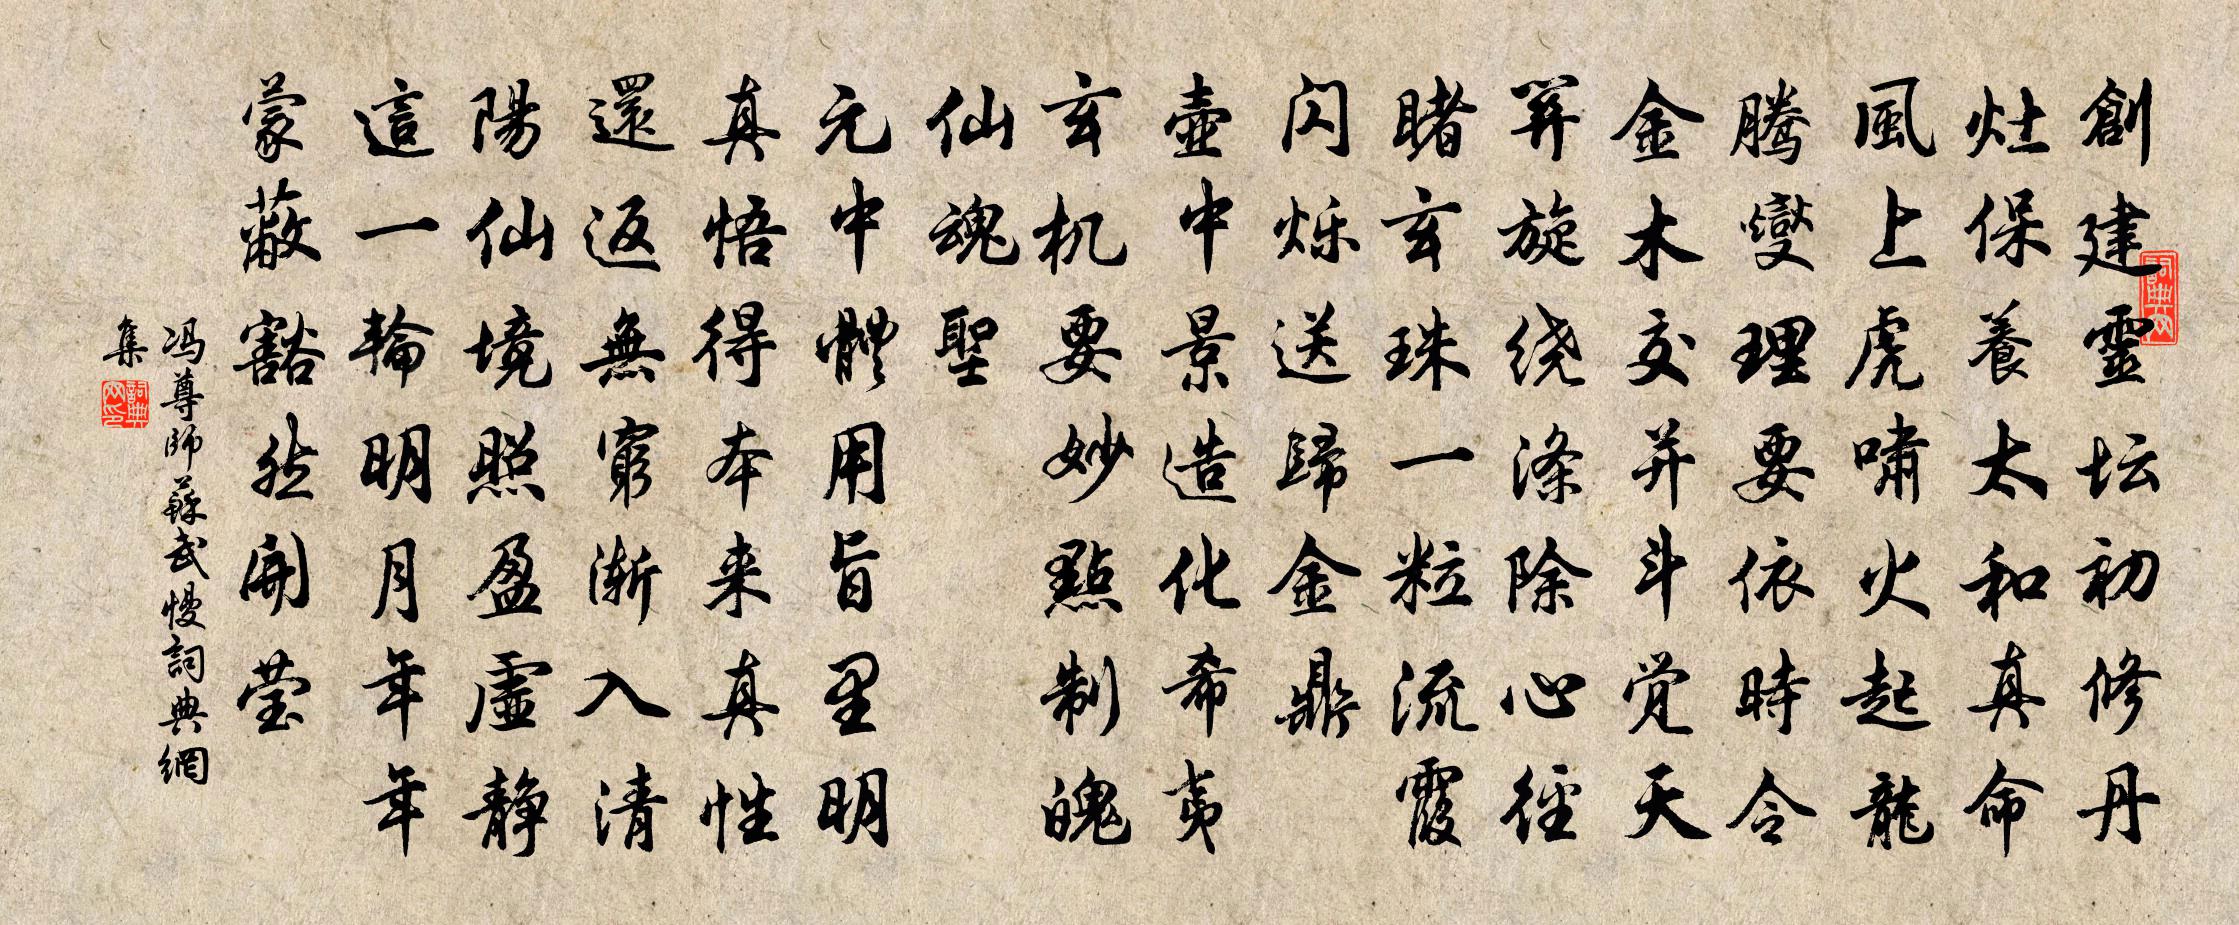 創建靈坛初修丹
灶保養太和真命
風上虎啸火起龍
腾變理要依時令
金木交并斗觉天
罡旋绕涤除心徑
睹玄珠一粒流霞
闪烁送歸金鼎
壺中景造化希夷
玄机要妙點制魄
仙魂聖
元中體用旨里明
真悟得本来真性
還返無窮渐入清
陽仙境照盈虛静
這一輪明月年年
蒙蔽豁然開莹
冯尊師蘇武慢詞典網
集